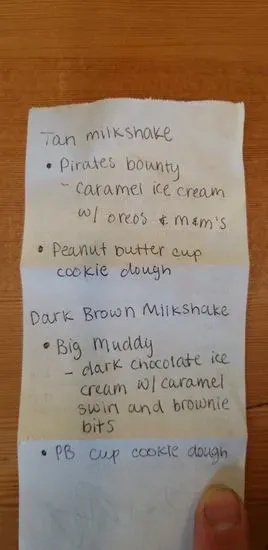 Tan milkshake
• Pirates bounty
- caramel ice cream
w/ oreos & m&m's
• Peanut butter cup
cookie dough
Dark Brown Milkshake
• Big Muddy
- dark chocolate ice
cream w/ caramel
swirl and brownie
bits
• PB cup cookie dough